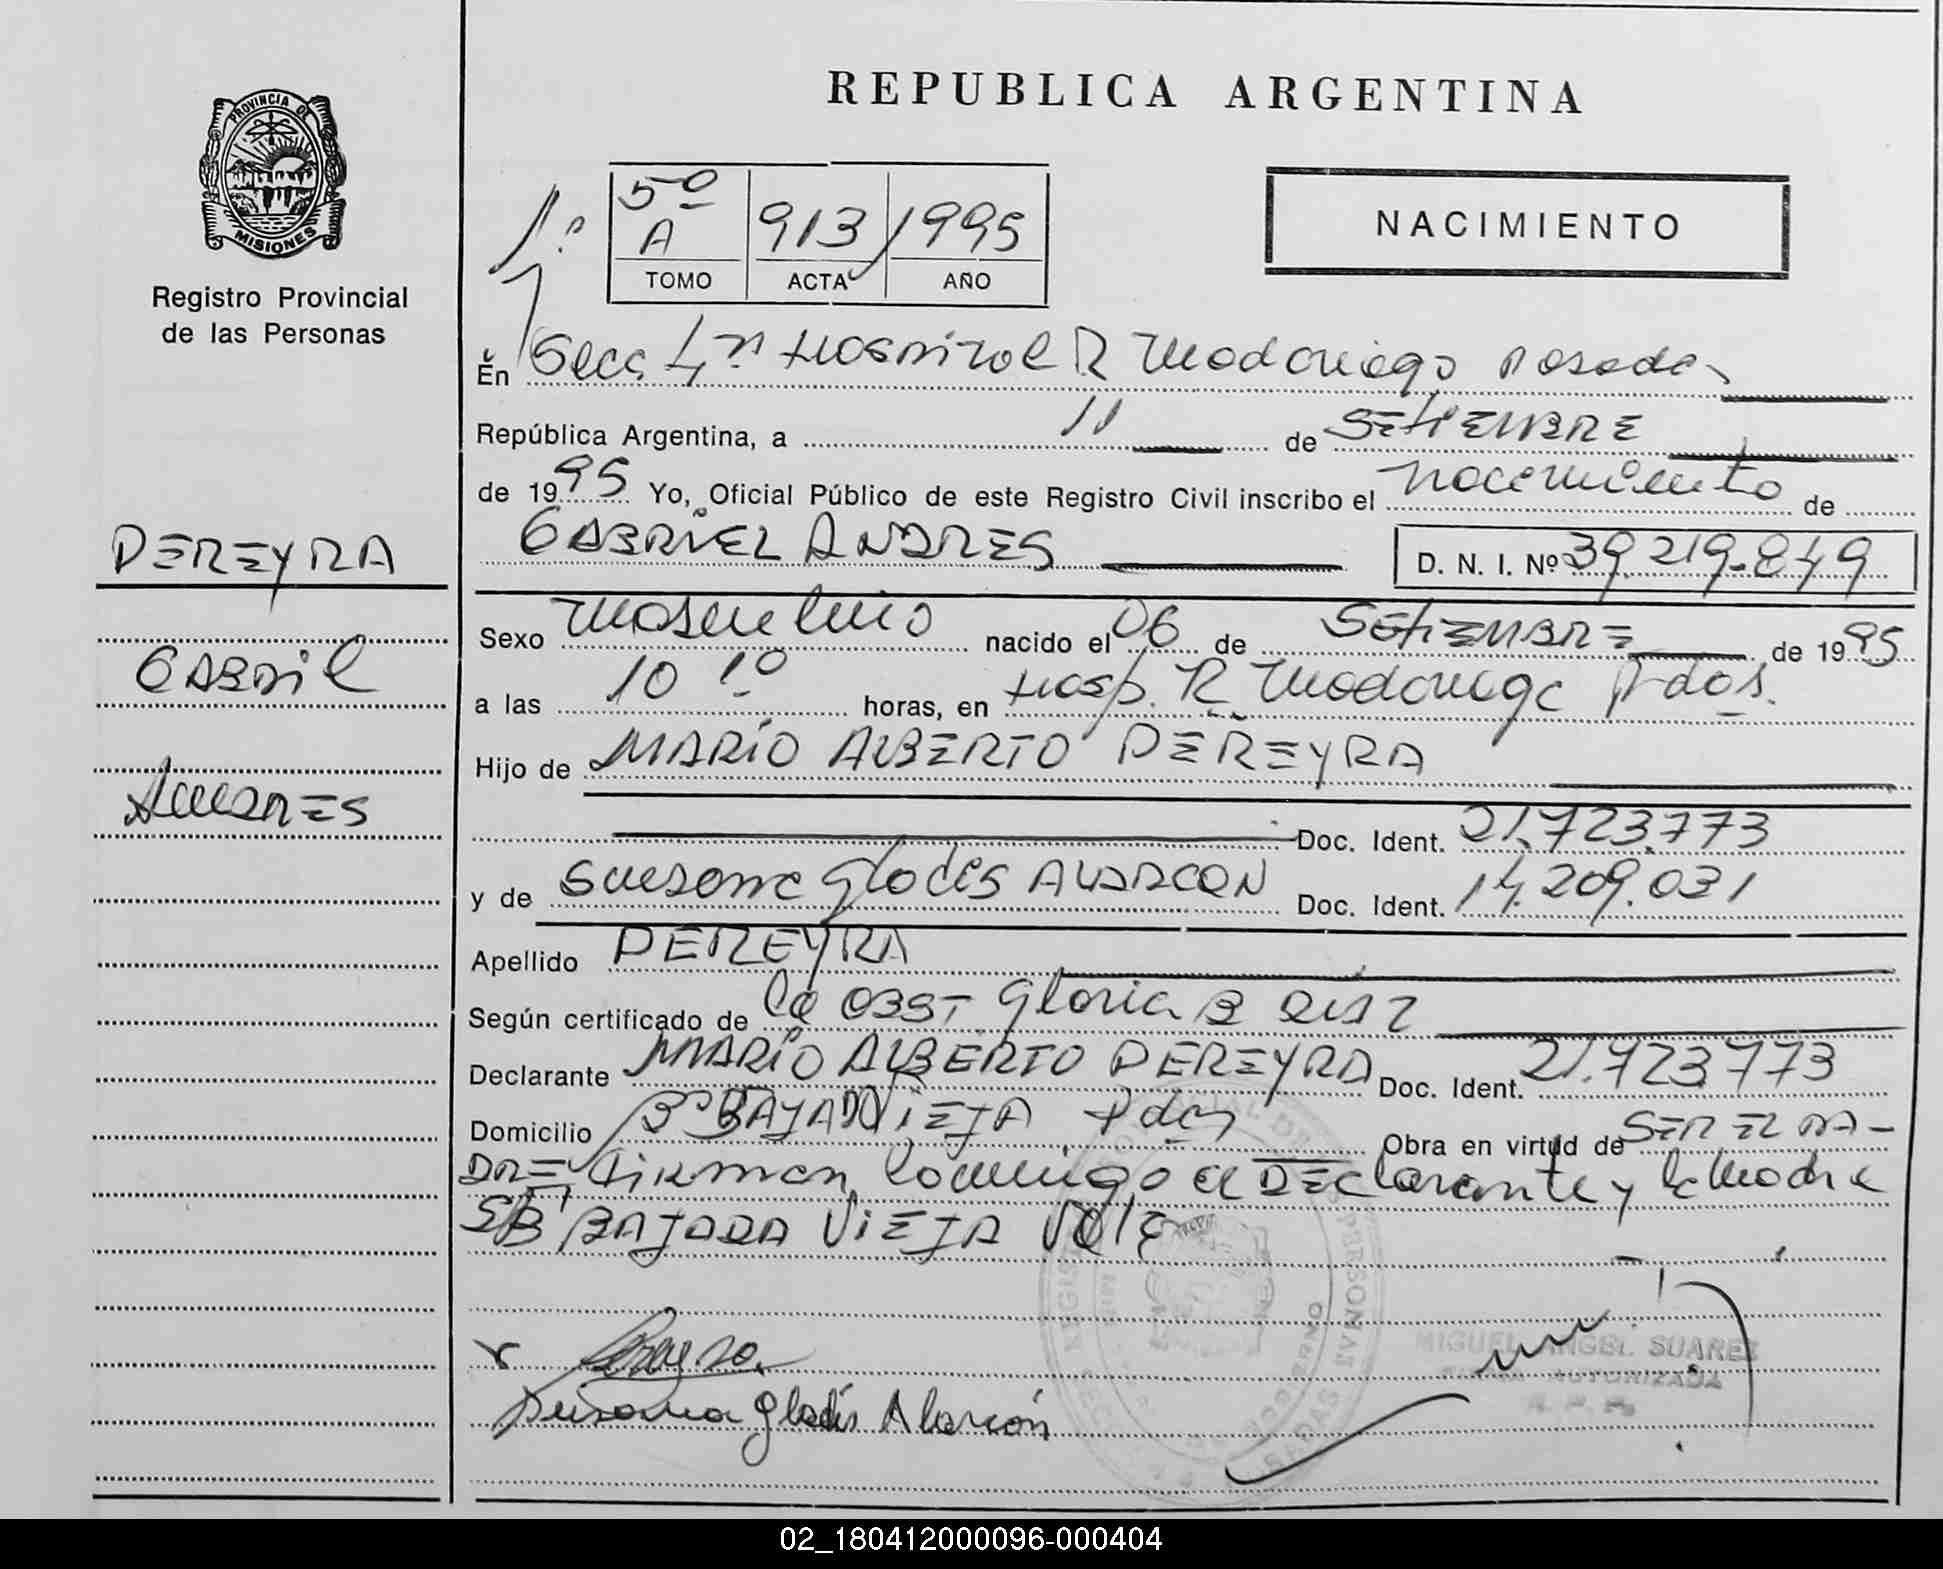 REPUBLICA ARGENTINA
PROVINCIA DE
MISIONES
Registro Provincial
de las Personas
5º A 913 1995
TOMO ACTA AÑO
NACIMIENTO
En Secc 4ª Hospital R Madariaga Posadas
República Argentina, a 11 de SETIEMBRE
de 1995 Yo, Oficial Público de este Registro Civil inscribo el nacimiento de
GABRIEL ANDRES D. N. I. Nº 39.219.849
PEREYRA
GABRIEL
ANDRES
Sexo masculino nacido el 06 de SETIEMBRE de 1995
a las 10 10 horas, en Hosp. R Madariaga Pdas.
Hijo de MARIO ALBERTO PEREYRA
Doc. Ident. 21.723.773
y de Susana Gladis ALARCON Doc. Ident. 14.209.031
Apellido PEREYRA
Según certificado de la OBST Gloria B
Declarante MARIO ALBERTO PEREYRA Doc. Ident. 21.723.773
Domicilio Bº BAJADA VIEJA Pdas Obra en virtud de SER EL PA-
DRE Firman conmigo el DEClarante y la Madre
S/B BAJADA VIEJA VALE
Susana Gladis Alarcón
MIGUEL ANGEL SUAREZ
FIRMA AUTORIZADA
R. P. P.
02_180412000096-000404